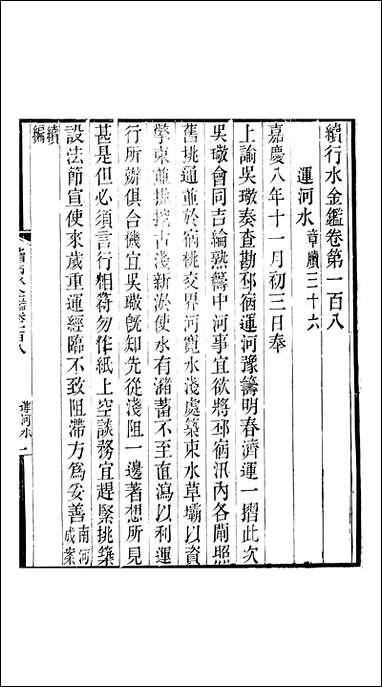 續行水金鑑卷第一百八
運河水章牘三十六
嘉慶八年十一月初三日奉
上諭吳璥奏查勘邳宿運河豫籌明春濟運一摺此次
吳璥會同吉綸熟籌中河事宜欲將邳宿汛內各閘照
舊挑通並於宿桃交界河寬水淺處築束水草壩以資
擎束並挑挖古淺新淤使水有瀦蓄不至直瀉以利運
行所辦俱合機宜吳璥旣知先從淺阻一邊著想所見
甚是但必須言行相符勿作紙上空談務宜趕緊挑築
設法節宣使來歲重運經臨不致阻滯方爲妥善南河成案
續行水金鑑卷一百八 運河水 一
續編